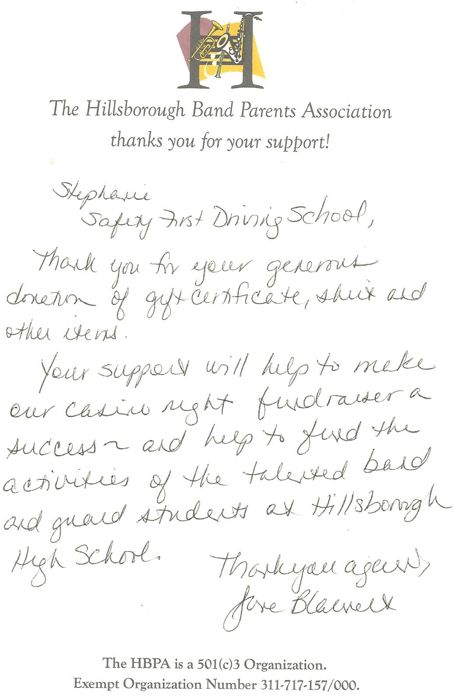 H
The Hillsborough Band Parents Association
thanks you for your support!
Stephanie
Safety First Driving School,
Thank you for your generous
donation of gift certificate, shirt and
other items.
Your support will help to make
our casino night fundraiser a
success ~ and help to fund the
activities of the talented band
and guard students at Hillsborough
High School.
Thank you again,
The HBPA is a 501(c)3 Organization.
Exempt Organization Number 311-717-157/000.